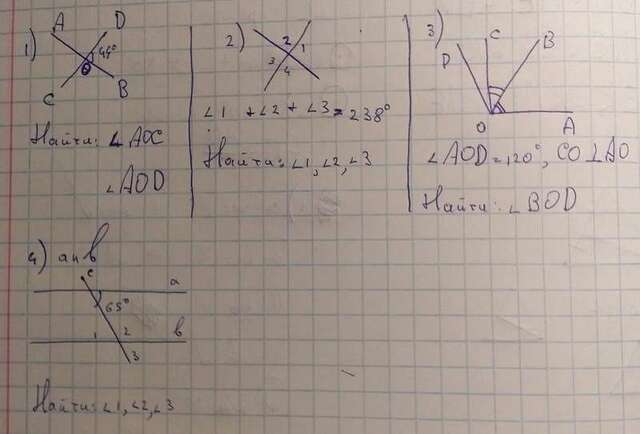 1)
A D
44°
O
C B
Найти: ∠AOC
∠AOD
2)
2 1
3 4
∠1 + ∠2 + ∠3 = 238°
Найти: ∠1, ∠2, ∠3
3)
D C B
O A
∠AOD = 120°, CO ⊥ AO
Найти: ∠BOD
4) a ıı b
c a
65°
1 2 b
3
Найти: ∠1, ∠2, ∠3